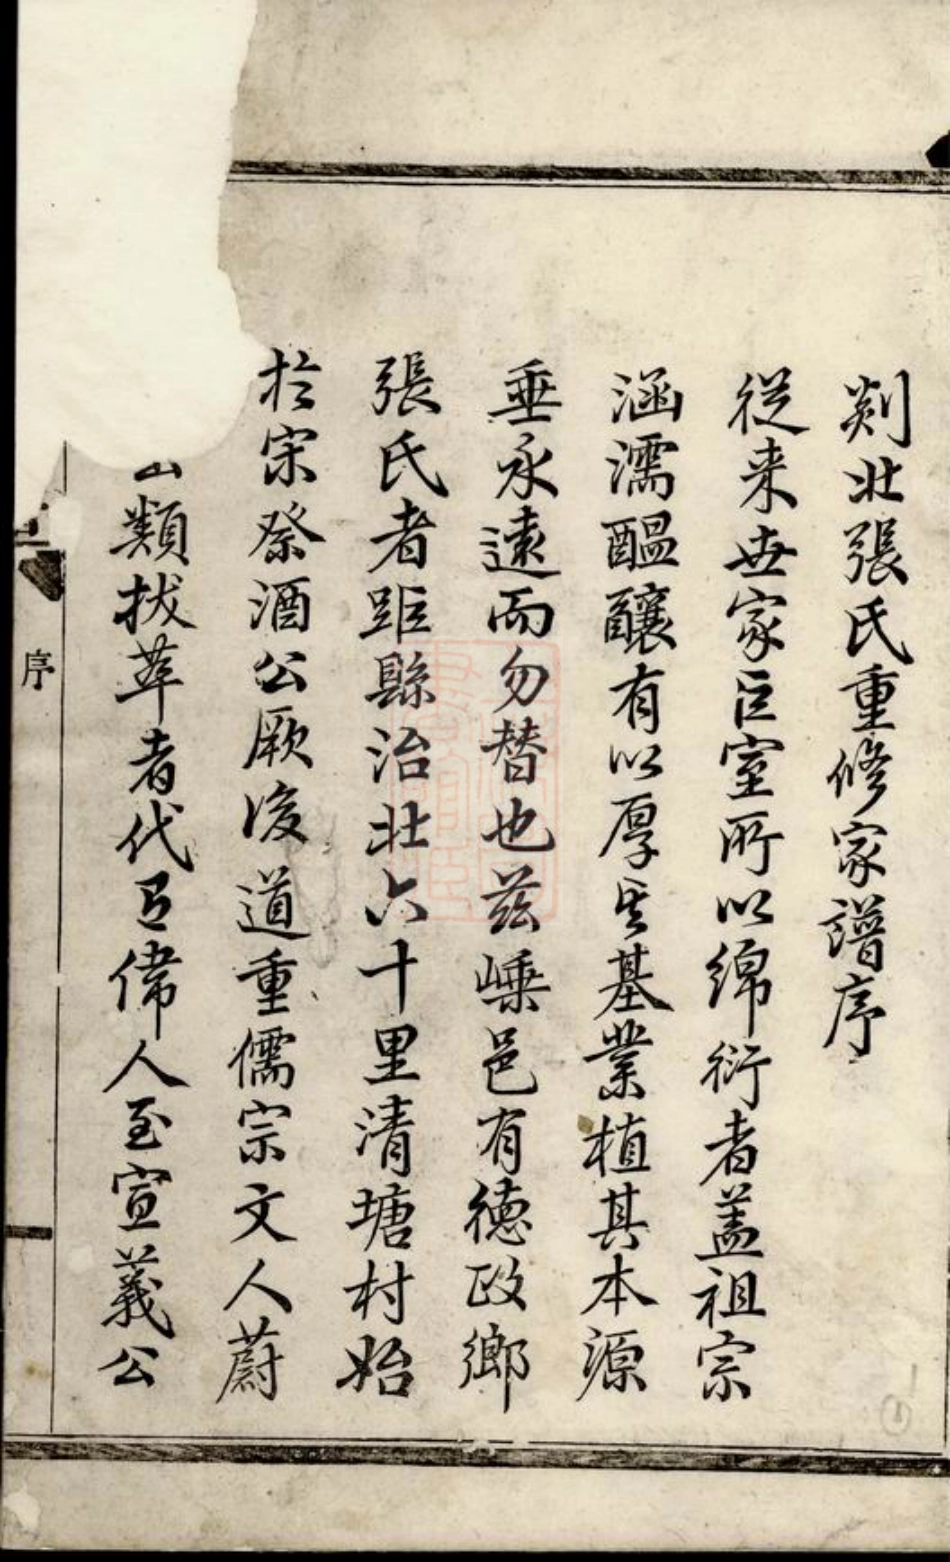 剡北張氏重修家譜序
從来世家巨室所以綿衍者盖祖宗
涵濡醞釀有以厚其基業植其本源
垂永遠而勿替也兹嵊邑有德政鄉
張氏者距縣治北六十里清塘村始
於宋祭酒公厥後道重儒宗文人蔚
類拔萃者代有偉人至宣義公
序